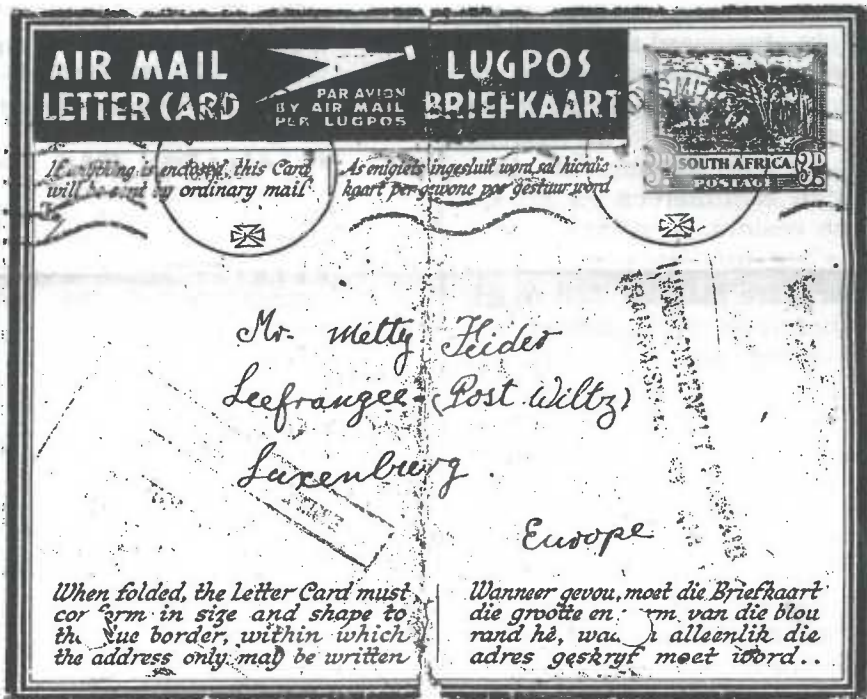 AIR MAIL
LETTER CARD
PAR AVION
BY AIR MAIL
PER LUGPOS
LUGPOS
BRIEFKAART
SOUTH AFRICA
3D. 3D.
POSTAGE
If anything is enclosed, this Card
will be sent by ordinary mail
As enigiets ingesluit word, sal hierdie
kaart per gewone pos gestuur word
Mr. Metty Heider
Leefrangee (Post Wiltz)
Luxenburg.
Europe
When folded, the Letter Card must
conform in size and shape to
the blue border, within which
the address only may be written
Wanneer gevou, moet die Briefkaart
die grootte en vorm van die blou
rand hê, waarin alleenlik die
adres geskryf moet word..